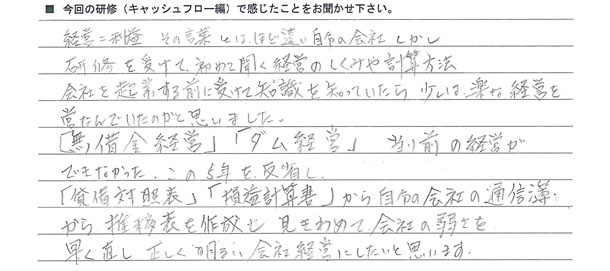 ■ 今回の研修（キャッシュフロー編）で感じたことをお聞かせ下さい。
経営＝利益 その言葉とは、ほど遠い自分の会社 しかし
研修を受けて、初めて聞く経営のしくみや計算方法
会社を起業する前に受けて知識を知っていたら 少しは、楽な経営を
営なんでいたのかと思いました。
「無借金経営」「ダム経営」 当り前の経営が
できなかった。この5年を反省し、
「貸借対照表」「損益計算書」から自分の会社の通信簿
から推移表を作成し 見きわめて会社の弱さを
早く直し 正しく明るい会社経営にしたいと思います。